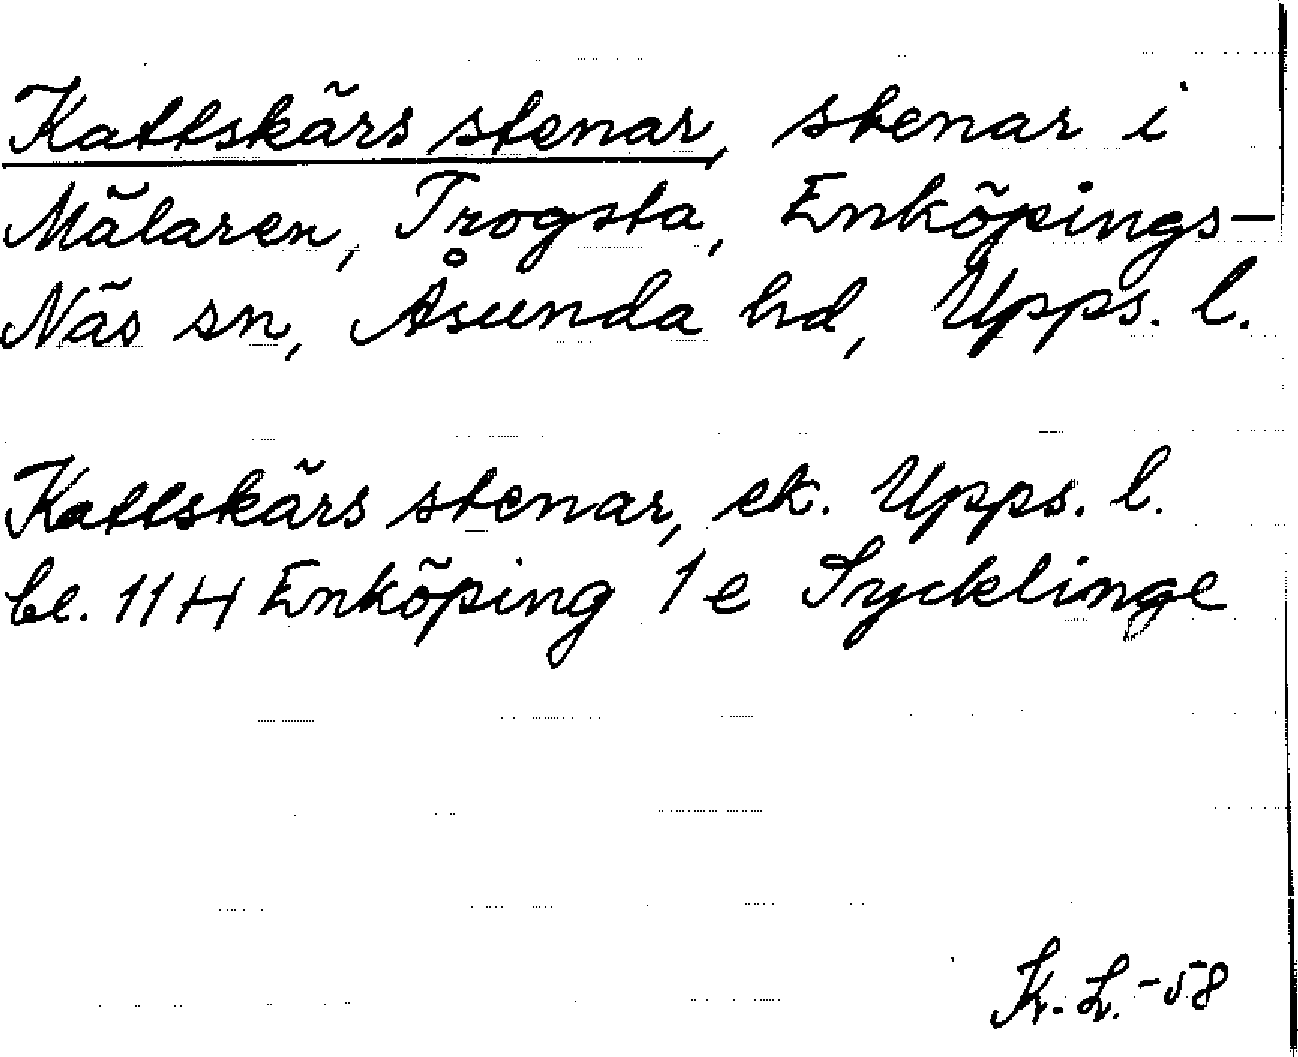 Kattskärs stenar, stenar i
Mälaren, Trogsta, Enköpings-
Näs sn, Åsunda hd, Upps. l.
Kattskärs stenar, ek. Upps. l.
bl. 11 H Enköping 1 e Srycklinge
K. L. -58